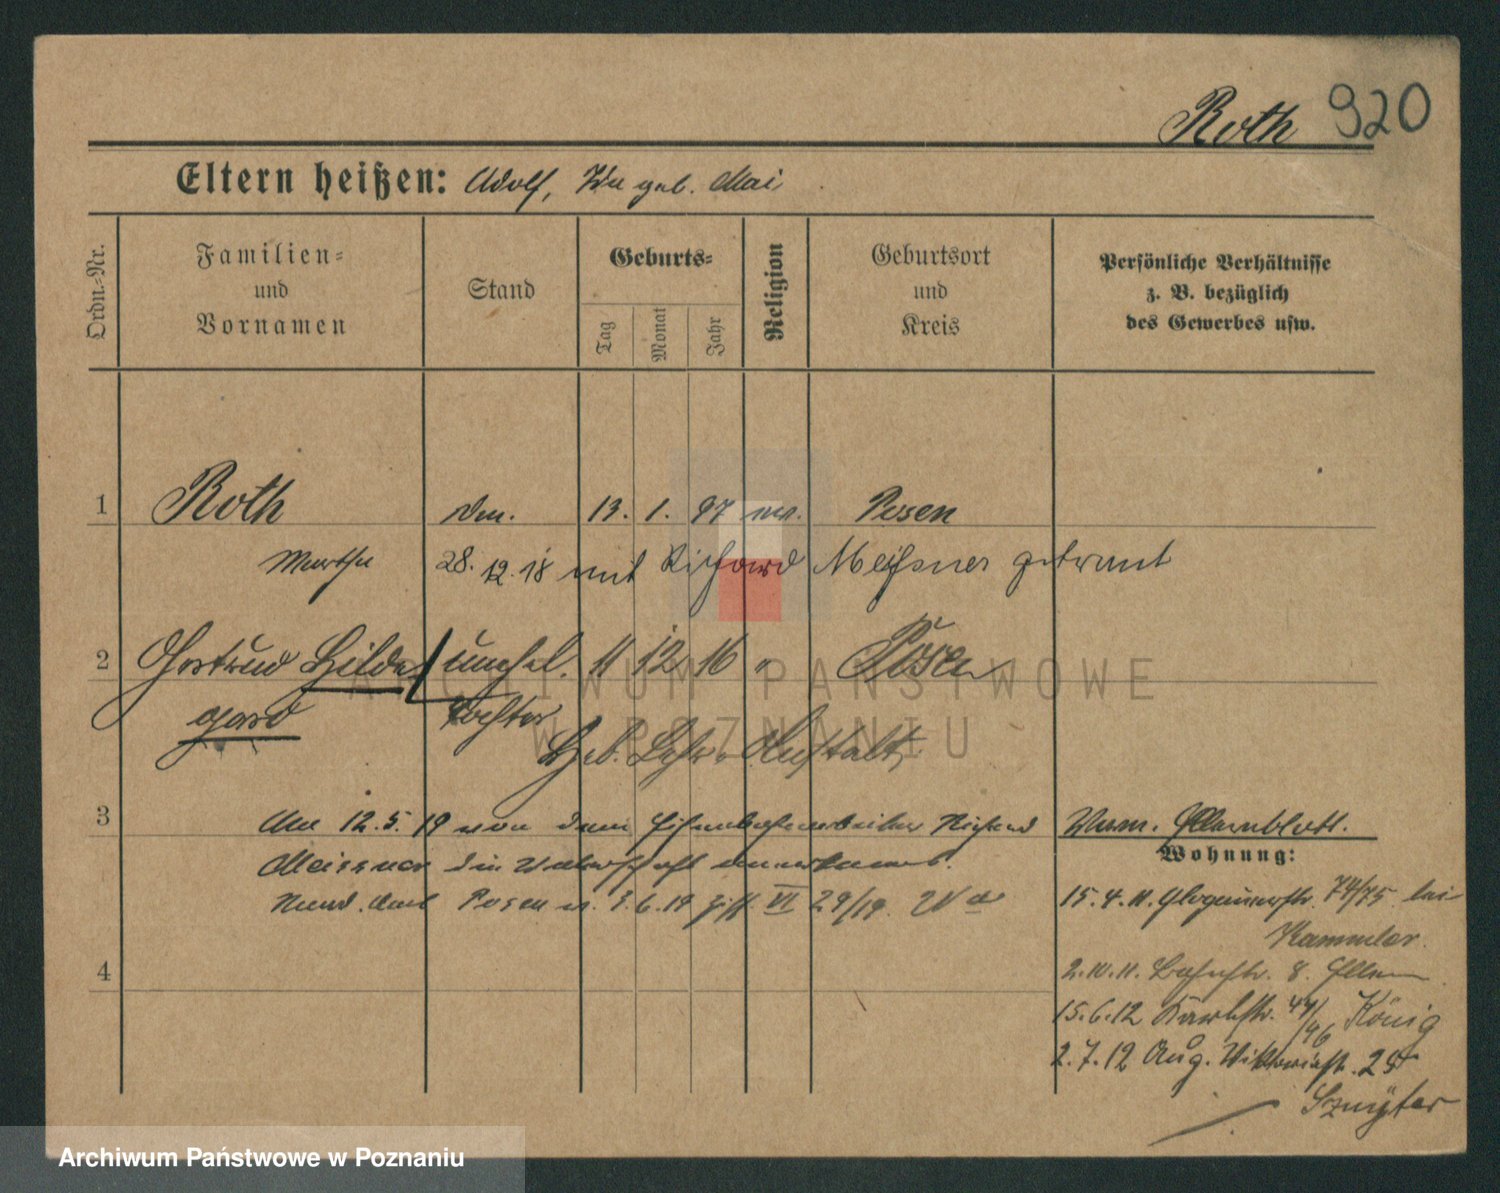 Roth 920
Eltern heißen: Adolf, Ida geb. Mai
Ordn.-Nr.
Familien-
und
Vornamen
Stand
Geburts-
Tag
Monat
Jahr
Religion
Geburtsort
und
Kreis
Persönliche Verhältnisse
z. B. bezüglich
des Gewerbes usw.
1 Roth 13. 1. 97 Posen
Martha 28. 12. 18 mit Richard Meißner getraut
2 Gertrud Hilde unehel. 11 12 16 " Posen
gard Tochter
Geb. Lehr-Anstalt
3 Am 12. 5. 19 von dem Eisenbahnarbeiter Richard
Meissner die Vaterschaft anerkannt.
Posen v. 3. 6. 19 VI 29/19.
Elternblatt.
Wohnung:
15. 4. 11. Glogauerstr. 74/75 bei
Kammler.
4
2. 10. 11. Bahnstr. 8. Eltern
15. 6. 12 44/46 König
2. 7. 12 Aug. Viktoriastr. 25
ARCHIWUM PAŃSTWOWE
W POZNANIU
Archiwum Państwowe w Poznaniu